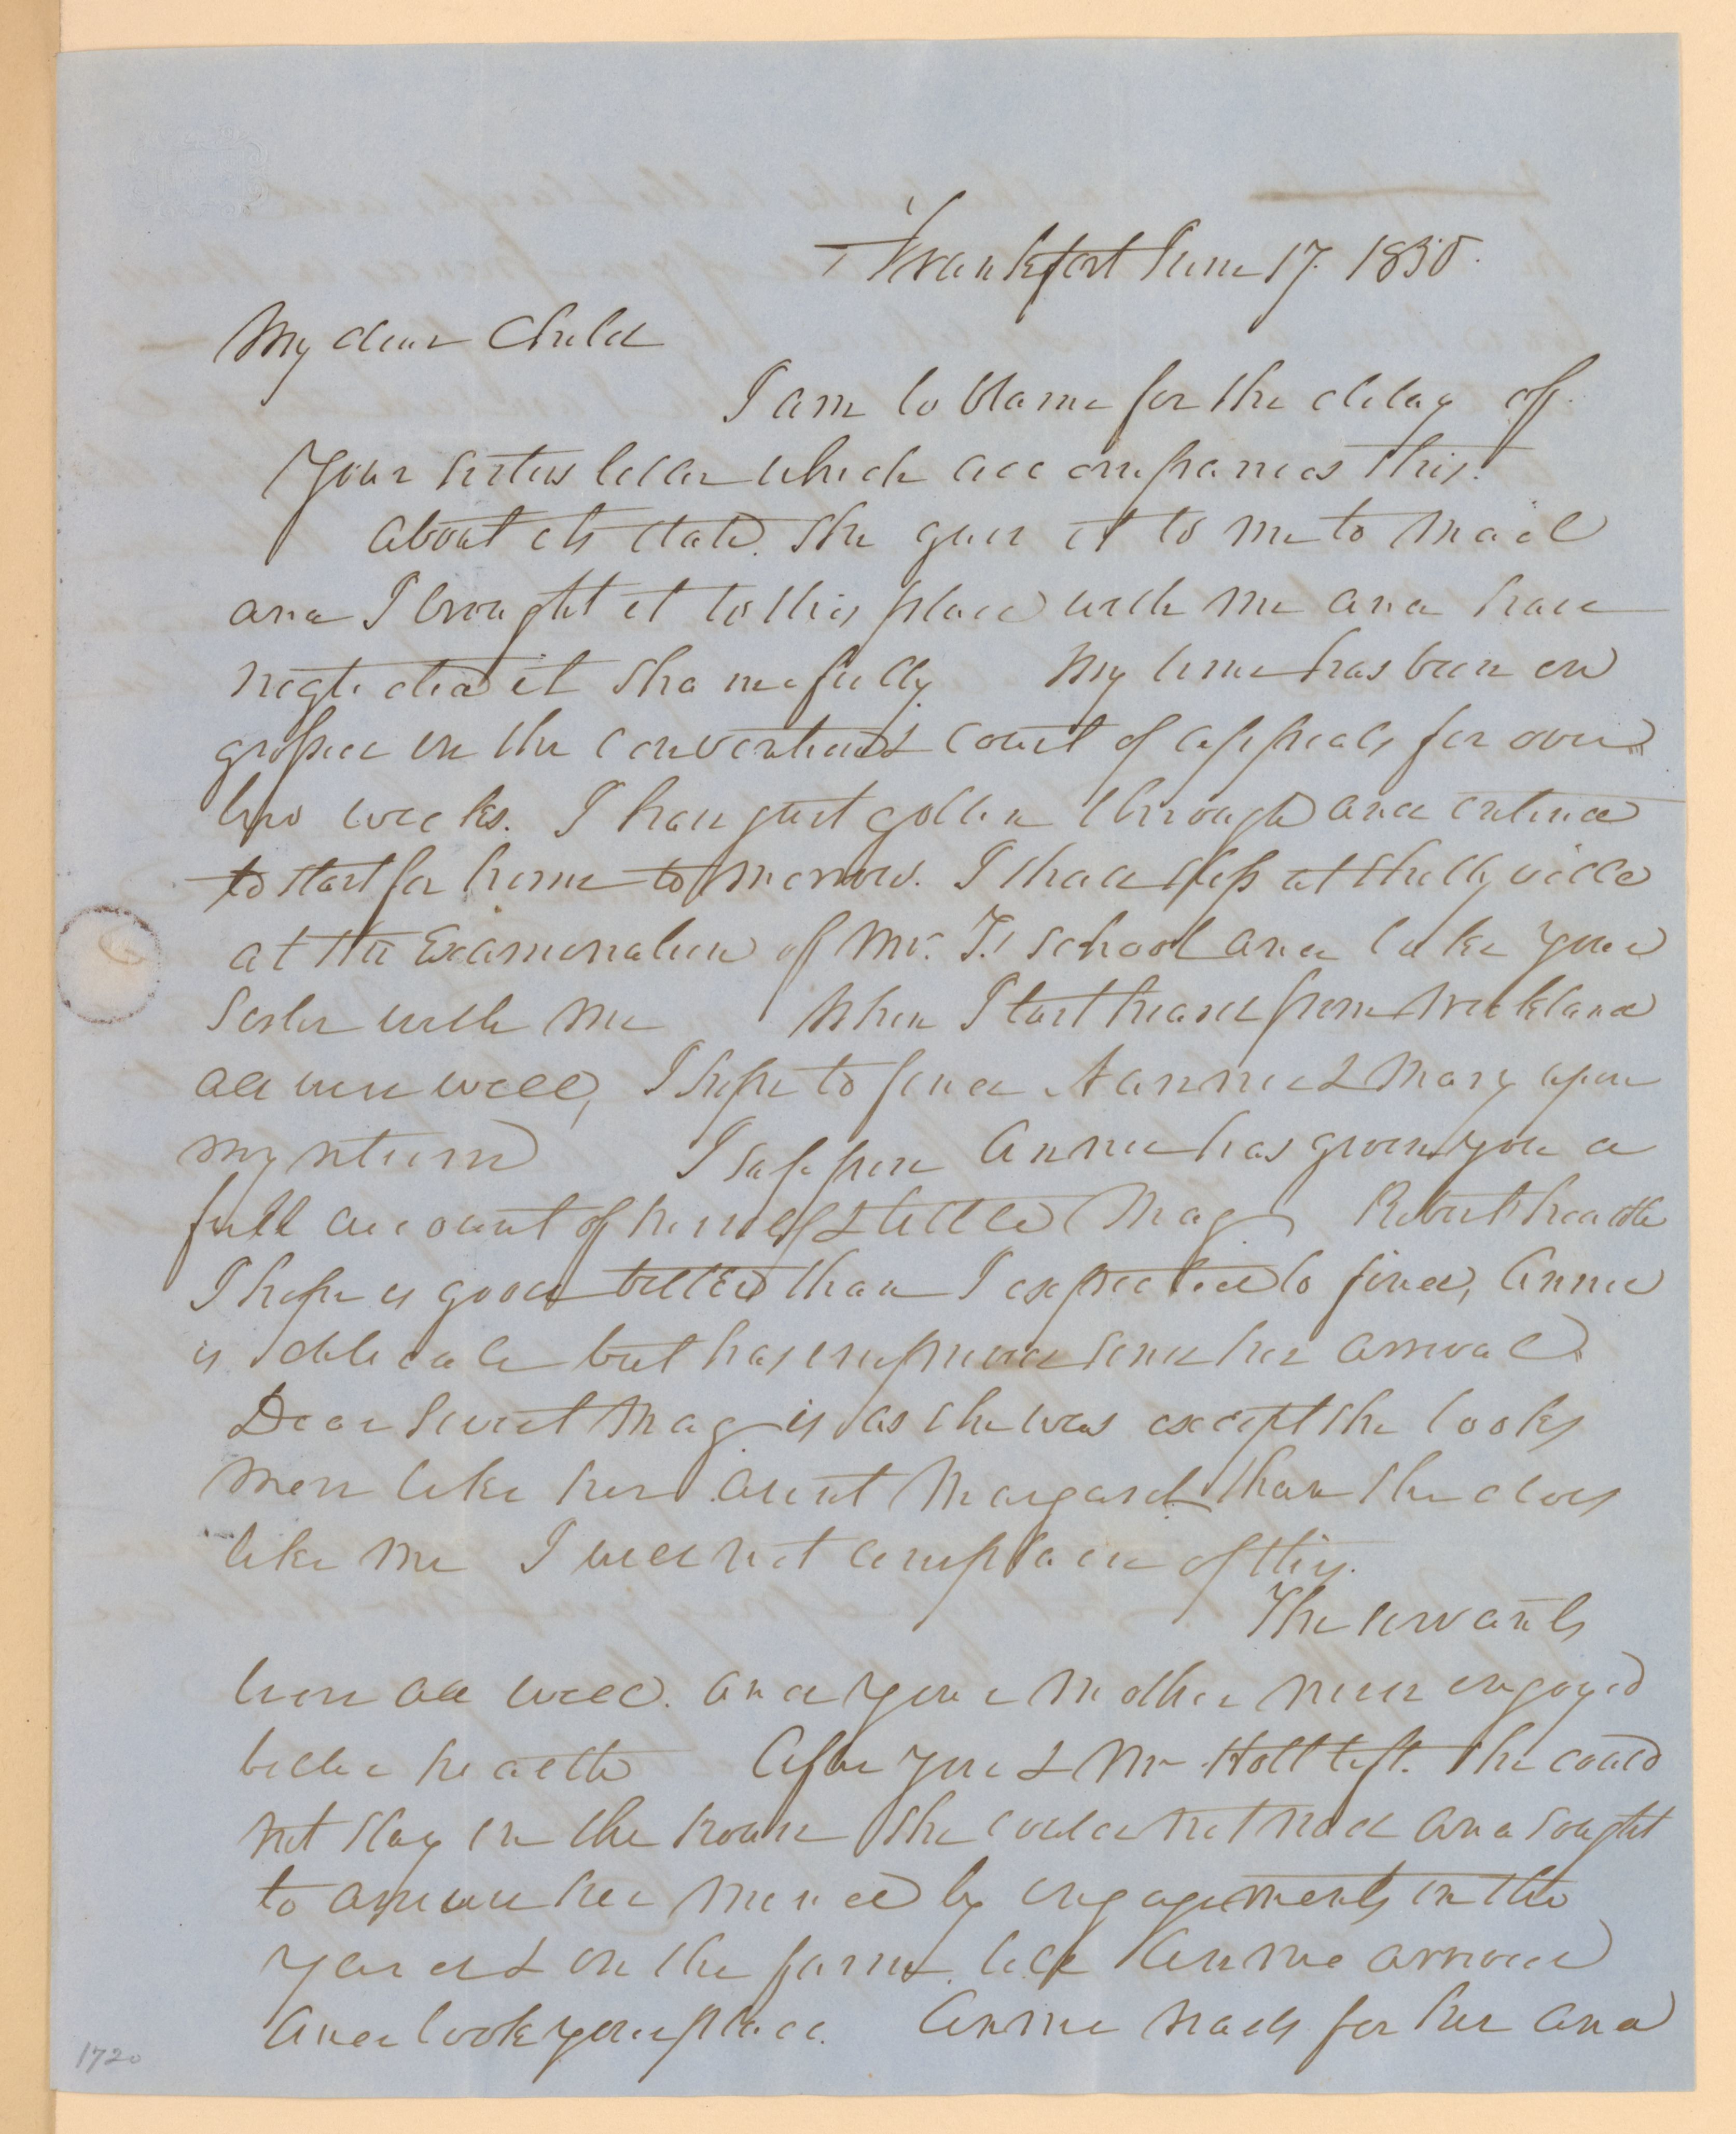 Frankfort June 17. 1850.
My dear Child
I am to blame for the delay of
your sisters letter which accompanies this.
about its date. She gave it to me to mail
and I brought it to this place with me and have
neglected it shamefully. My time has been en
grossed in the convention & court of appeals for over
two weeks. I have just gotten through and intend
to start for home to morrow. I shall stop at Shelbyville
at the Examination of Mr. T.s school and take your
Sister with me When I last heard from Wickland
all were well, I hope to find Nannie & Mary upon
my return I suppose Annie has given you a
full account of herself & little Mag Roberts health
I hope is good better than I expected to find, Annie
is delicate but has improved since her arrival.
Dear Sweet Mag is as she was except she looks
more like her aunt Margaret than she does
like me I will not complain of this.
The servants
were all well. and your mother never enjoyed
better health After you & Mr Holt left. She could
not stay in the house She could not read and sought
to amuse her mind by engagements in the
yard & on the farm, till Annie arrived
and took your place. Annie reads for her and
1720